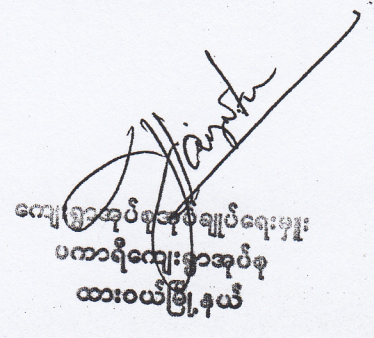 ကျေးရွာအုပ်စုအုပ်ချုပ်ရေးမှူး
ပကာရီကျေးရွာအုပ်စု
ထားဝယ်မြို့နယ်